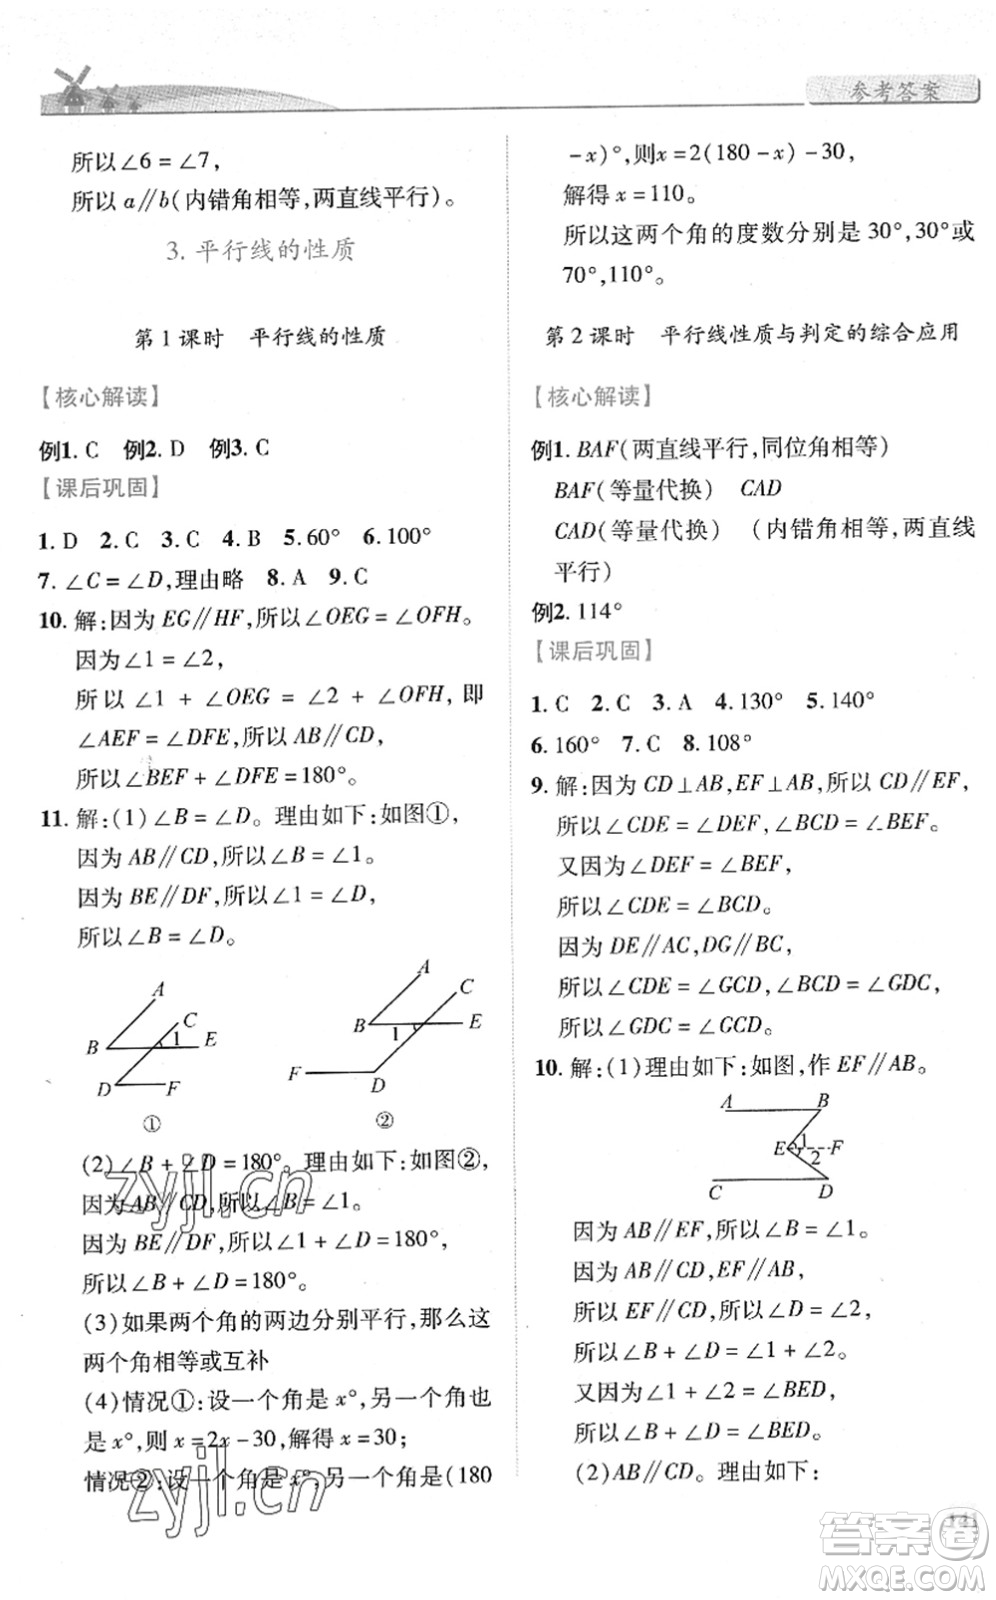 参考答案
所以∠6=∠7,
所以 a∥b(内错角相等,两直线平行)。
3. 平行线的性质
第1课时 平行线的性质
【核心解读】
例1. C 例2. D 例3. C
【课后巩固】
1. D 2. C 3. C 4. B 5. 60° 6. 100°
7. ∠C=∠D,理由略 8. A 9. C
10. 解:因为 EG∥HF,所以∠OEG=∠OFH。
因为∠1=∠2,
所以∠1+∠OEG=∠2+∠OFH,即
∠AEF=∠DFE,所以AB∥CD,
所以∠BEF+∠DFE=180°。
11. 解:(1)∠B=∠D。理由如下:如图①,
因为 AB∥CD,所以∠B=∠1。
因为 BE∥DF,所以∠1=∠D,
所以∠B=∠D。
A
C
B
1
E
D
F
①
A
C
B
1
E
F
D
②
(2)∠B+∠D=180°。理由如下:如图②,
因为AB∥CD,所以∠B=∠1。
因为 BE∥DF,所以∠1+∠D=180°,
所以∠B+∠D=180°。
(3)如果两个角的两边分别平行,那么这
两个角相等或互补
(4)情况①:设一个角是 x°,另一个角也
是 x°,则 x=2x-30,解得 x=30;
情况②:设一个角是 x°,另一个角是(180
-x)°,则 x=2(180-x)-30,
解得 x=110。
所以这两个角的度数分别是 30°,30°或
70°,110°。
第2课时 平行线性质与判定的综合应用
【核心解读】
例1. BAF(两直线平行,同位角相等)
BAF(等量代换) CAD
CAD(等量代换) (内错角相等,两直线
平行)
例2. 114°
【课后巩固】
1. C 2. C 3. A 4. 130° 5. 140°
6. 160° 7. C 8. 108°
9. 解:因为 CD⊥AB,EF⊥AB,所以 CD∥EF,
所以∠CDE=∠DEF,∠BCD=∠BEF。
又因为∠DEF=∠BEF,
所以∠CDE=∠BCD。
因为 DE∥AC,DG∥BC,
所以∠CDE=∠GCD,∠BCD=∠GDC,
所以∠GDC=∠GCD。
10. 解:(1)理由如下:如图,作 EF∥AB。
A
B
E
1
F
2
C
D
因为 AB∥EF,所以∠B=∠1。
因为 AB∥CD,EF∥AB,
所以 EF∥CD,所以∠D=∠2,
所以∠B+∠D=∠1+∠2。
又因为∠1+∠2=∠BED,
所以∠B+∠D=∠BED。
(2)AB∥CD。理由如下:
141
zyjl.cn
zyjl.cn
答案圈
MXQE.COM